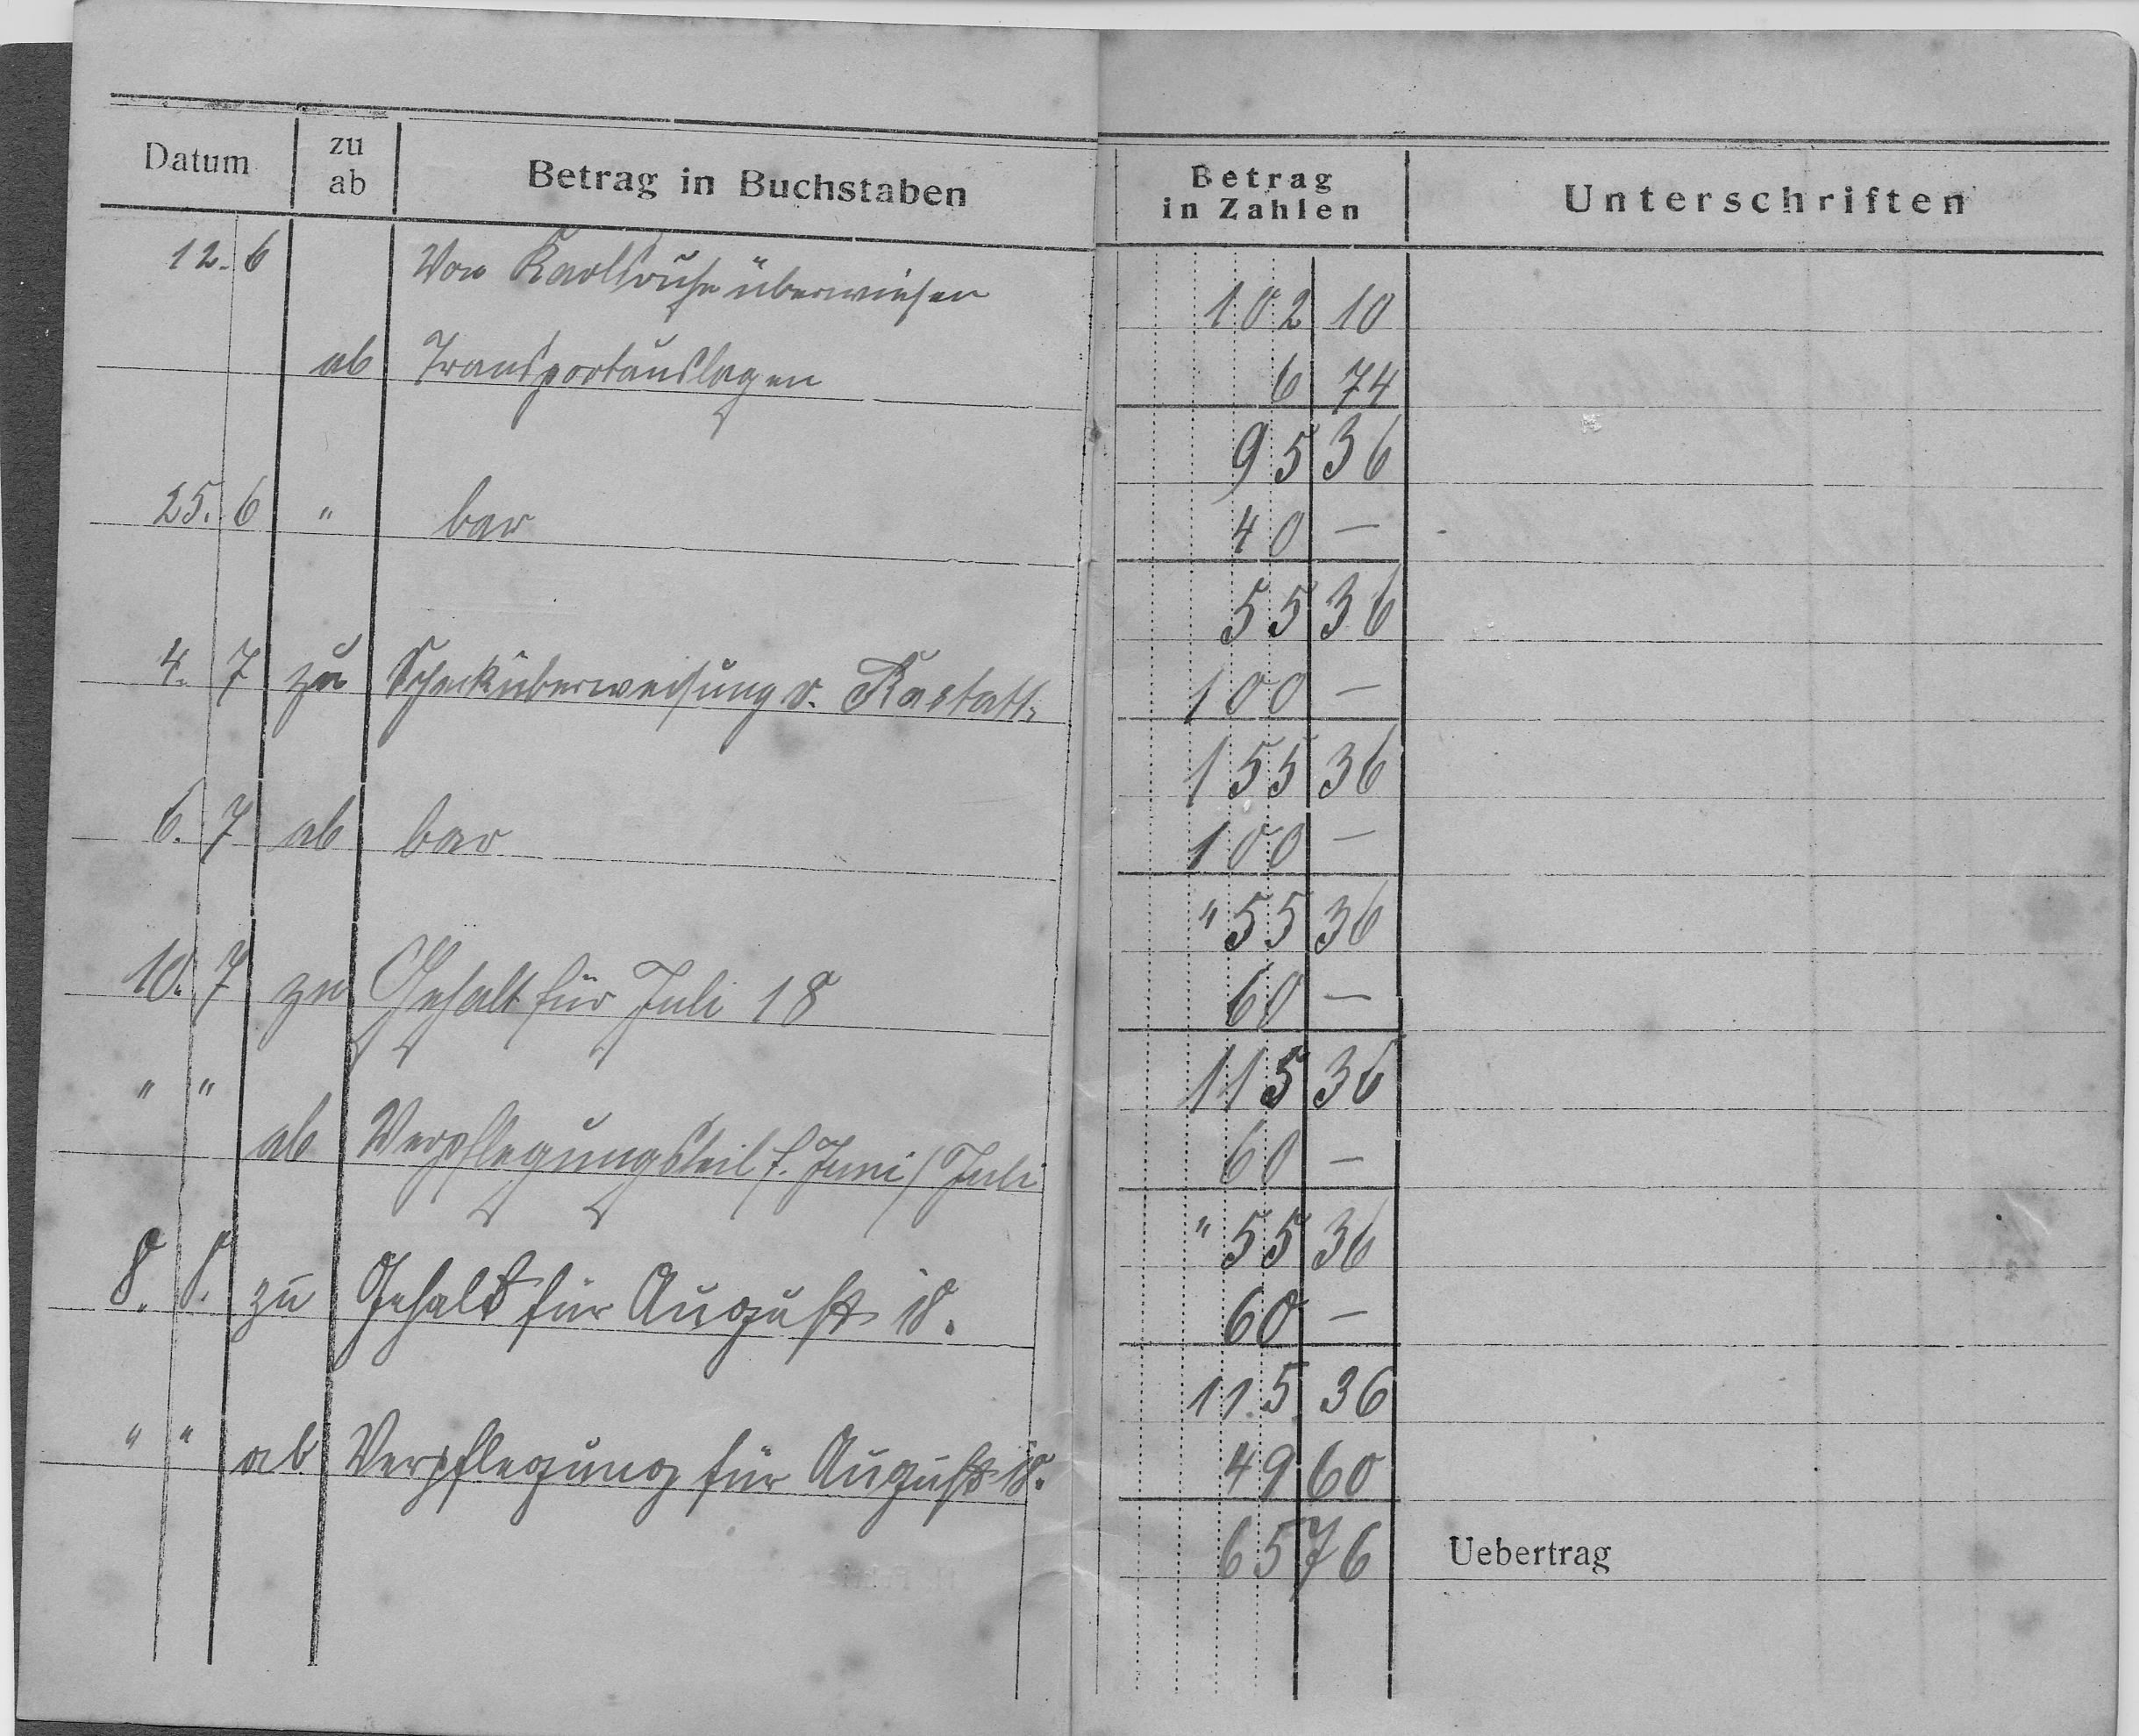 Datum zu ab Betrag in Buchstaben Betrag in Zahlen Unterschriften
12. 6 Von Karlsruhe überwiesen 102 10
ab Transportauslagen 6 74
95 36
25. 6 " bar 40 —
55 36
4. 7 zu Schecküberweisung v. Rastatt. 100 —
155 36
6. 7 ab bar 100 —
" 55 36
10. 7 zu Gehalt für Juli 18 60 —
115 36
" " ab Verpflegungsteil f. Juni / Juli 60 —
" 55 36
8. 8. zu Gehalt für August 18. 60 —
115 36
" " ab Verpflegung für August 18. 49 60
65 76 Uebertrag